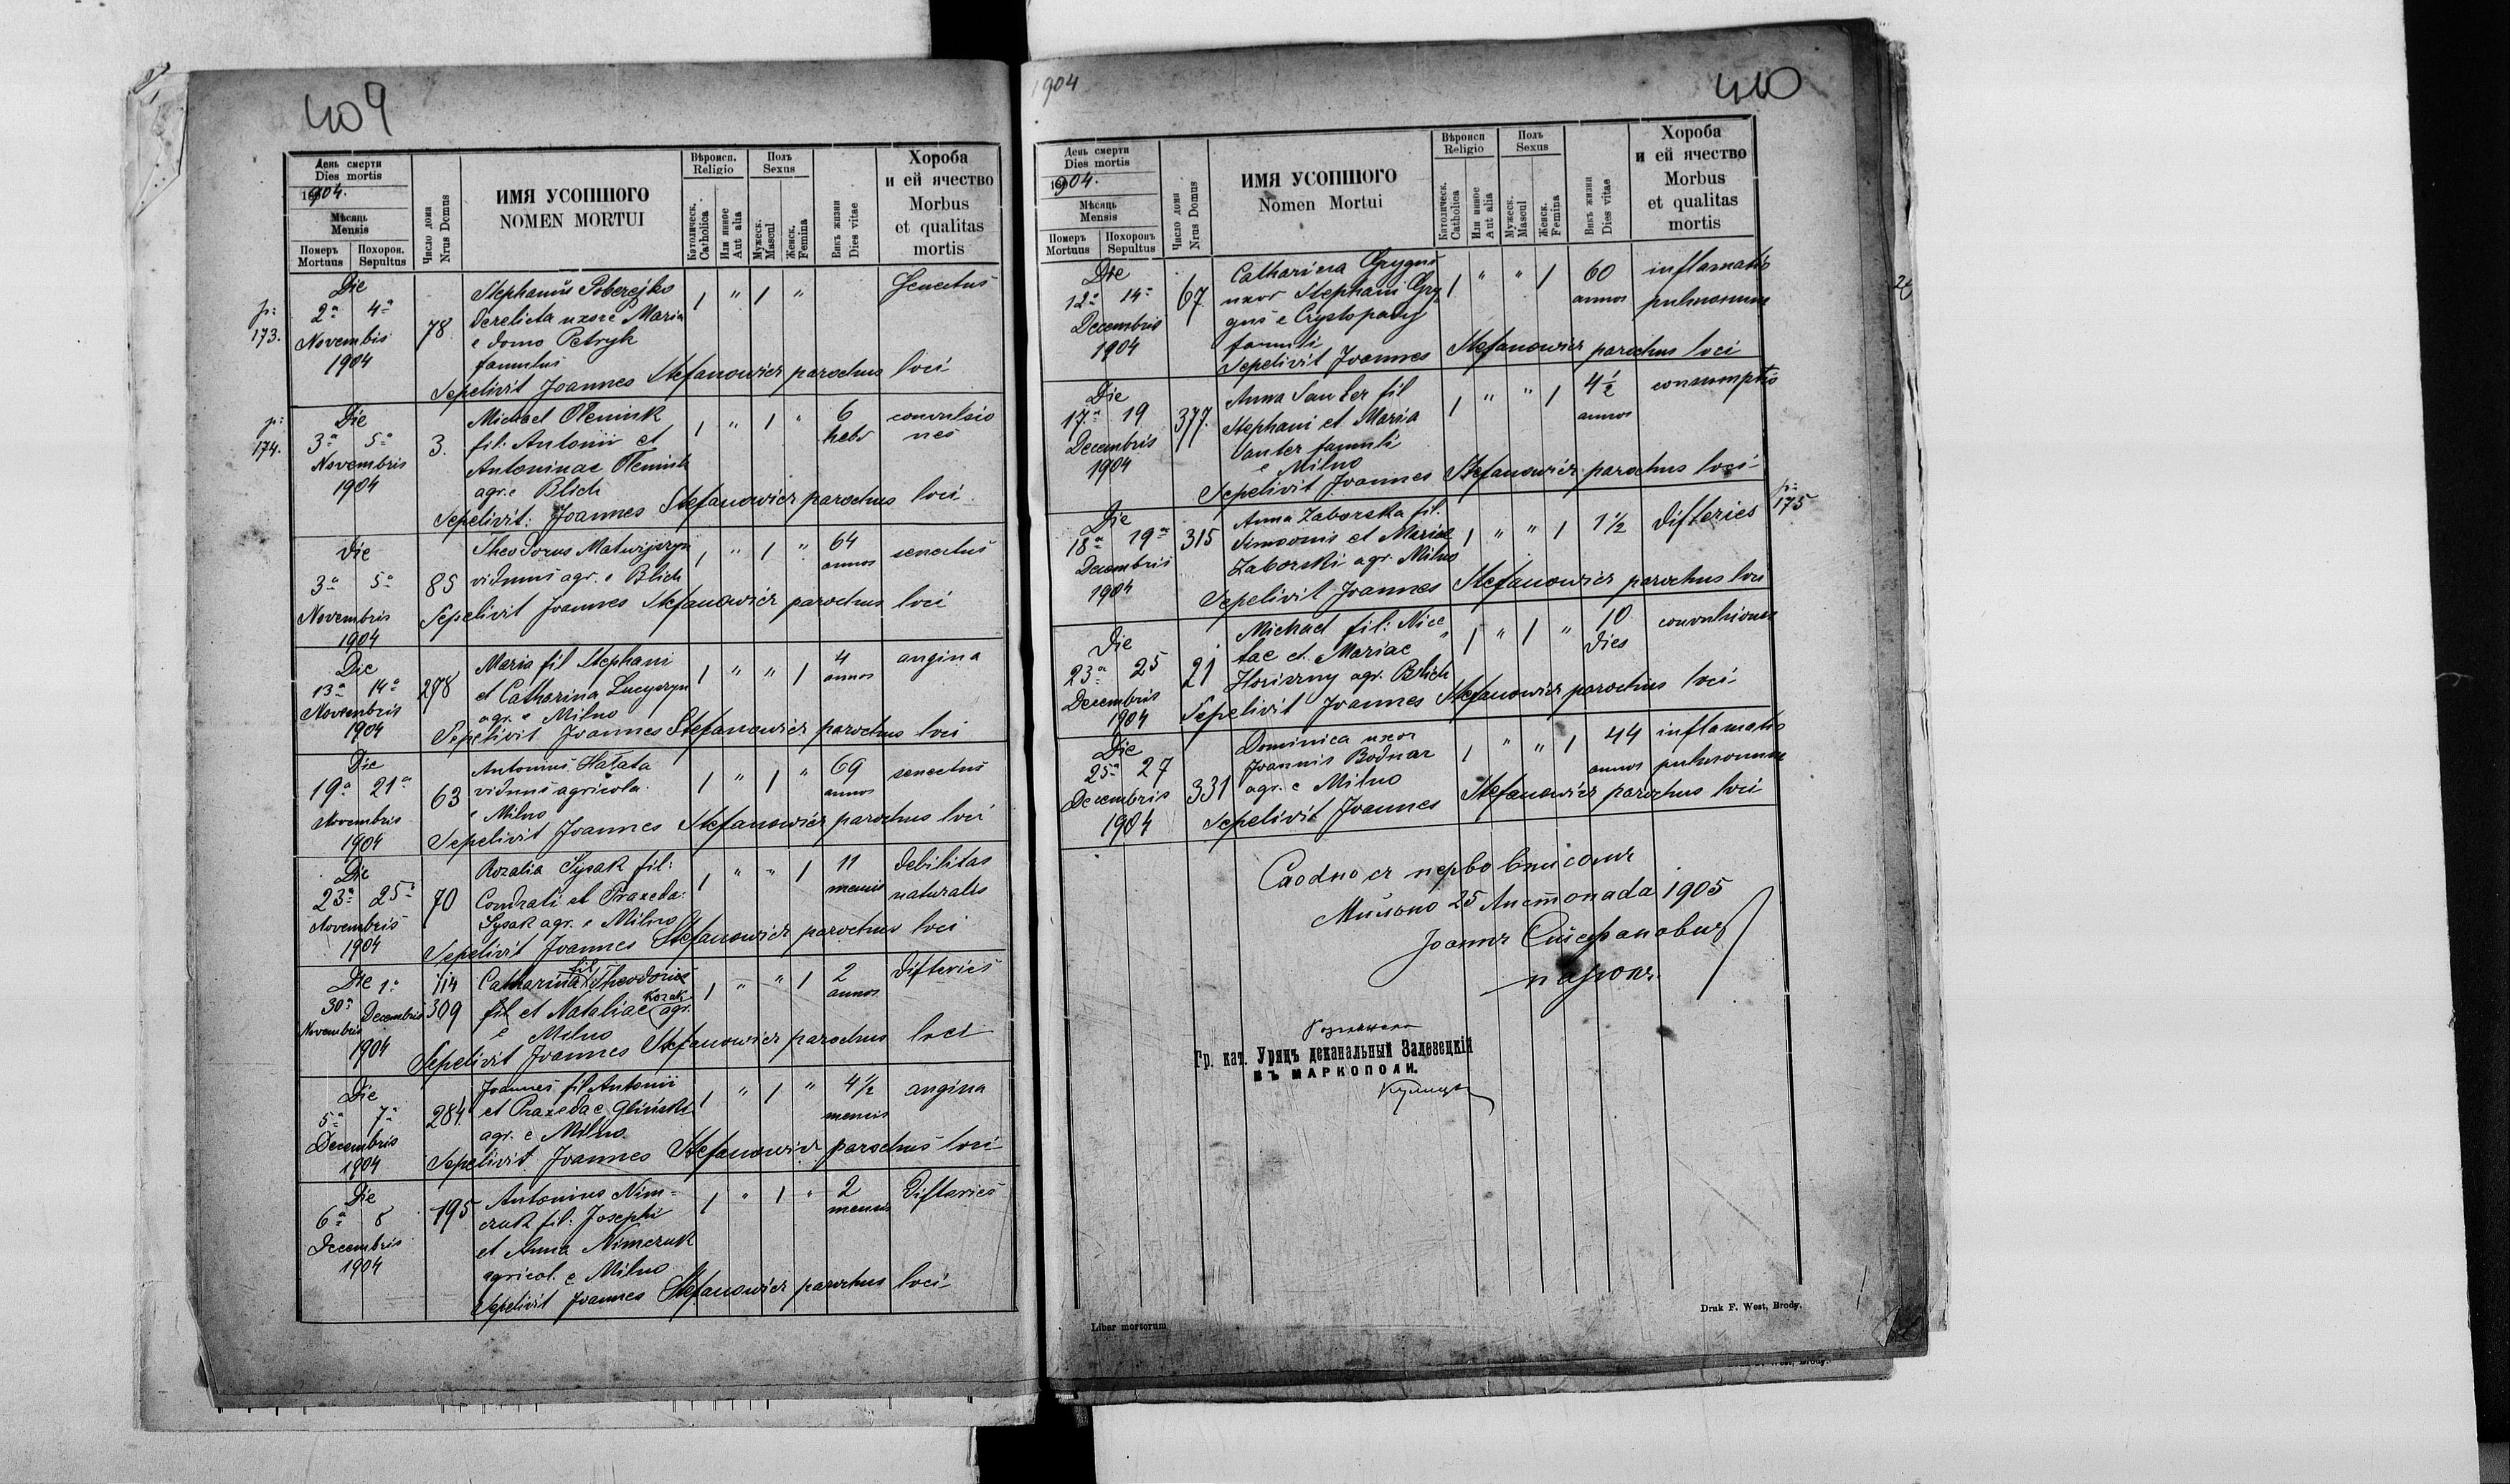 409
День смерти
Dies mortis
1904.
Мѣсяць
Mensis
Померъ Похорон.
Mortuus Sepultus
Число дома
Nrus Domus
ИМЯ УСОПШОГО
NOMEN MORTUI
Вѣроисп.
Religio
Католическ.
Catholica
Или инное
Aut alia
Полъ
Sexus
Мужеск.
Mascul
Женск.
Femina
Викъ жизни
Dies vitae
Хороба
и ей ячество
Morbus
et qualitas
mortis
p:
173.
Die
2ª 4ª
Novembis
1904
78
Stephanus Poberejko
derelicta uxore Maria
e domo Petryk
famulus
1 " 1 "
Senectus
Sepelivit Joannes Stefanowicz parochus loci
p:
174.
Die
3ª 5ª
Novembris
1904
3.
Michael Olenink
fil: Antonii et
Antoninae Olenink
agr. e Blich
1 " 1 "
6
hebd
convulsio
nes
Sepelivit: Joannes Stefanowicz parochus loci
Die
3ª 5ª
Novembris
1904
85
Theodorus Matwijczyn
viduus agr. e Blich
1 " 1 "
64
annos
senectus
Sepelivit Joannes Stefanowicz parochus loci
Die
13ª 14ª
Novembris
1904
278
Maria fil Stephani
et Catharina Lucyszyn
agr. e Milno
1 " " 1
4
annos
angina
Sepelivit Joannes Stefanowicz parochus loci
Die
19ª 21ª
Novembris
1904
63
Antonius Hałata
viduus agricola
e Milno
1 " 1 "
69
annos
senectus
Sepelivit Joannes Stefanowicz parochus loci
Die
23ª 25ª
Novembris
1904
70
Rozalia Sysak fil:
Condrati et Praxeda
Sysak agr. e Milno
1 " " 1
11
mensis
debilitas
naturalis
Sepelivit Joannes Stefanowicz parochus loci
Die 1ª
30ª Decembris
Novembris
1904
114
309
Catharina fil Theodorius
fil et Nataliae Kozak agr.
e Milno
1 " " 1
2
annos
difteries
Sepelivit Joannes Stefanowicz parochus loci
Die
5ª 7ª
Decembris
1904
284
Joannes fil Antonii
et Praxedae Gliński
agr. e Milno
1 " 1 "
4 ½
mensis
angina
Sepelivit Joannes Stefanowicz parochus loci
Die
6ª 8
Decembris
1904
195
Antonius Nim=
czuk fil: Josephi
et Anna Nimczuk
agricol. e Milno
1 " 1 "
2
mensis
Difteries
Sepelivit Joannes Stefanowicz parochus loci
1904
410
День смерти
Dies mortis
1904.
Мѣсяць
Mensis
Померъ Похоронъ
Mortuus Sepultus
Число дома
Nrus Domus
ИМЯ УСОПШОГО
Nomen Mortui
Вѣроисп
Religio
Католическ.
Catholica
Или инное
Aut alia
Полъ
Sexus
Мужеск.
Mascul
Женск.
Femina
Викъ жизни
Dies vitae
Хороба
и ей ячество
Morbus
et qualitas
mortis
Die
12ª 14ª
Decembris
1904
67
Catharina Grygus
uxor Stephani Gry
gus e Crystopady
famuli
1 " " 1
60
annos
inflamatio
pulmonum
Sepelivit Joannes Stefanowicz parochus loci
Die
17ª 19
Decembris
1904
377.
Anna Sauter fil
Stephani et Maria
Sauter famuli
e Milno
1 " " 1
4 ½
annos
consumptio
Sepelivit Joannes Stefanowicz parochus loci
p:
175
Die
18ª 19ª
Decembris
1904
315
Anna Zaborska fil.
Simeonis et Mariae
Zaborski agr. Milno
1 " " 1
1 ½
difteries
Sepelivit Joannes Stefanowicz parochus loci
Die
23ª 25
Decembris
1904
21
Michael fil: Nice
tae et Mariae
agr. Blich
1 " 1 "
10
dies
convulsiones
Sepelivit Joannes Stefanowicz parochus loci
Die
25ª 27
Decembris
1904
331
Dominica uxor
Joannis Bodnar
agr. e Milno
1 " " 1
44
annos
inflamatio
pulmonum
Sepelivit Joannes Stefanowicz parochus loci
Сходно съ перво
Мильно 25 Листопада 1905
Іоаннъ Стефановичъ
парохъ
Гр. кат. Урядъ деканальный Заложецкій
въ МАРКОПОЛИ.
Liber mortorum
Druk F. West, Brody.